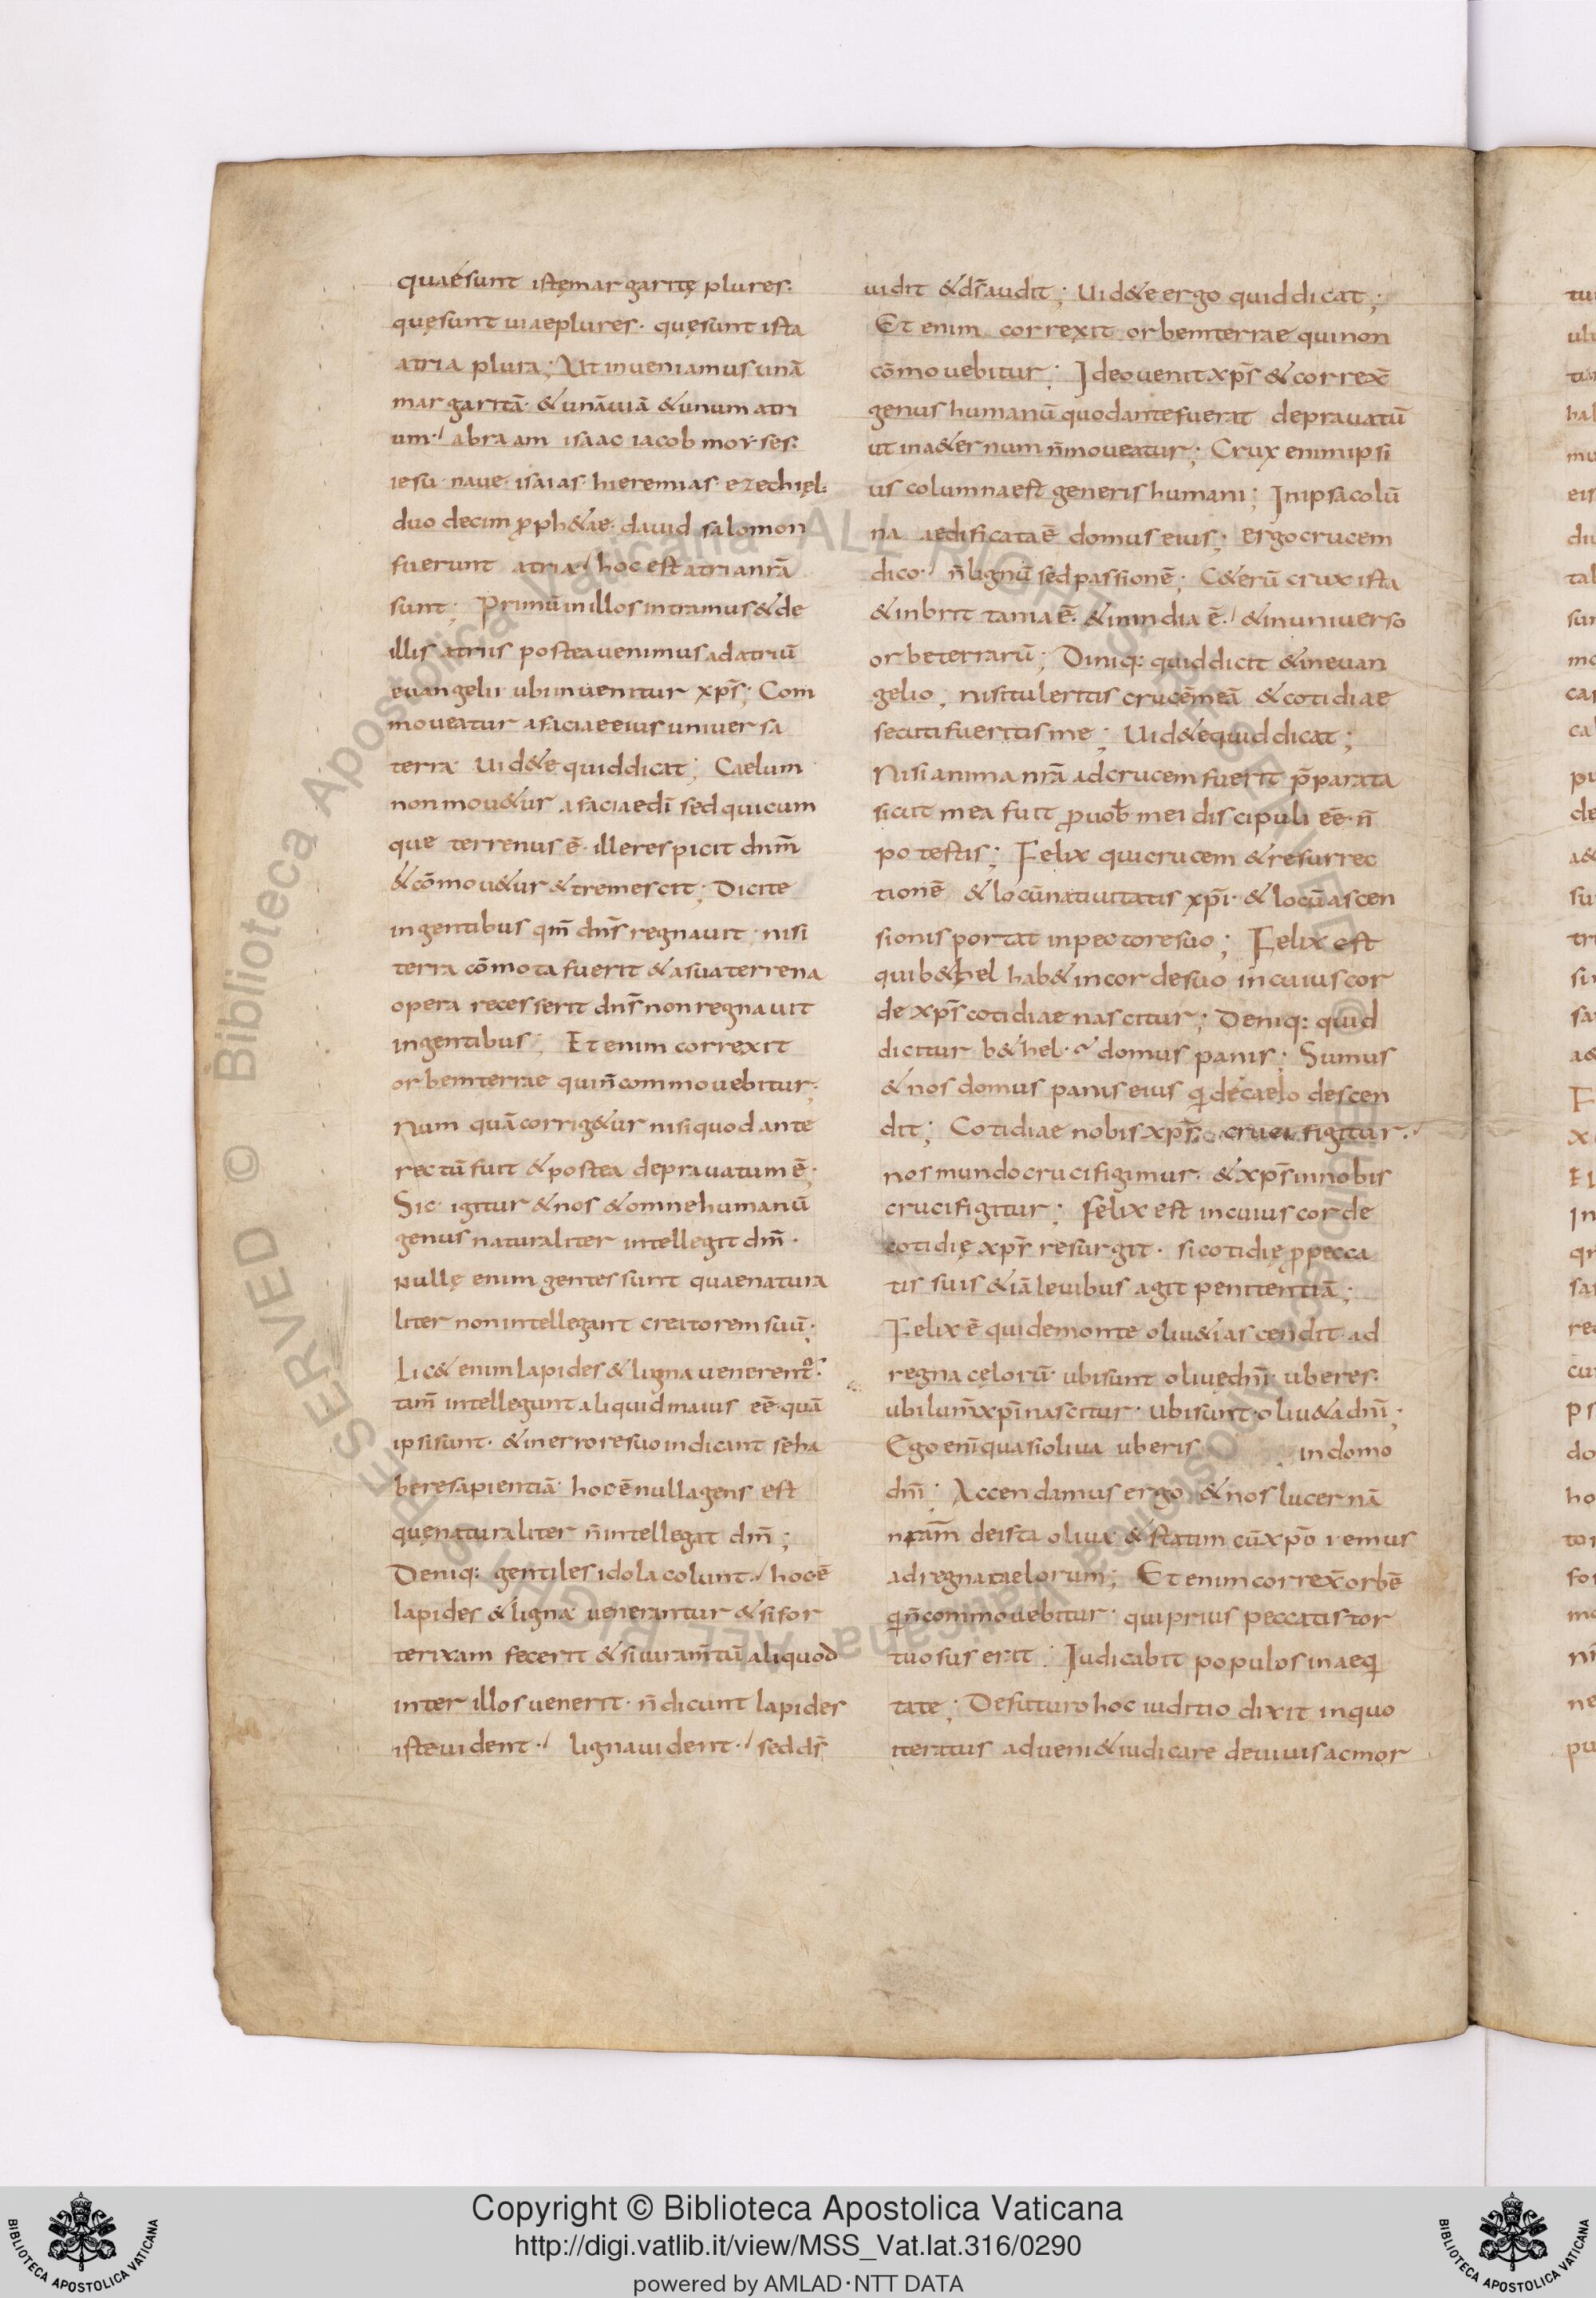 quaesunt istęmargaritę plures:
quęsunt uiaeplures· quęsunt ista
atria plura; Ut inueniamus unā
margaritā· & unāuiā & unum atri
um·/ abraam isaac iacob moyses:
iesu naue· isaias· hieremias· ezechiel:
duodecim ꝓph&ae: dauid salomon
fuerunt atria·/ hoc est atria nr̄a
sunt; Primū inillos intramus & de
illis atriis postea uenimus ad atriū
euangelii ubi inuenitur xp̄s; Com
moueatur afaciaeeius uniuersa
terra· Uid&e quiddicit; Caelum
non mou&ur afaciaedī sed quicum
que terrenus ē· ille respicit dnm̄
& cōmou&ur & tremescit; Dicite
ingentibus qm̄ dn̄s regnauit· nisi
terra cōmota fuerit & asuaterrena
opera recesserit dn̄s non regnauit
ingentibus; Et enim correxit
orbemterrae quin̄ commouebitur;
Num quā corrig&ur nisi quod ante
rectū fuit & postea deprauatum ē;
Sic igitur & nos & omnehumanū
genus naturaliter intellegit dm̄·
Nullę enim gentes sunt quaenatura
liter nonintellegant creatorem suū·
Lic& enim lapides & ligna uenerent·
tam̄ intellegunt aliquid maius eē· quā
ipsi sunt· & inerrore suo indicant seha
beresapientiā· hoc ē nullagens est
quęnaturaliter n̄ intellegat dm̄;
Deniq: gentiles idola colunt·/ hoc ē
lapides & ligna uenerantur & si for
te rixam fecerit & si iuramt̄ū aliquod
inter illos uenerit· n̄ dicunt lapides
iste uident·/ ligna uident·/ sed ds̄
uidit & ds̄ audit; Uid&e ergo quid dicat;
Et enim correxit orbemterrae qui non
cōmouebitur; Ideo uenit xp̄s & correx̄
genus humanū quodante fuerat deprauatū
ut ina&ernum n̄ moueatur; Crux enim ipsi
us columna est generis humani; In ipsa colū
na aedificata ē domus eius; ergo crucem
dico·/ n̄ lignū sed passionē; C&erū crux ista
& inbrittania ē· & inindia ē·/ & in uniuerso
orbeterrarū; Diniq: quid dicit & in euan
gelio, nisi tuleritis crucē meā & cotidiae
secuti fueritis me; Uid&e quid dicat;
Nisi anima nr̄a ad crucem fuerit p̄parata
sicut mea fuit ꝓ uob̄ mei discipuli eē· n̄
potestis; Felix qui crucem & resurrec
tionē & locū natiuitatis xp̄i· & locū ascen
sionis portat inpectoresuo; Felix est
qui b&hel hab& in cordesuo in cuius cor
de xp̄s cotidiae nascitur; Deniq: quid
dicitur b&hel· domus panis; Sumus
& nos domus panis eius qi decaelo descen
dit; Cotidiae nobis xp̄s crucifigitur·
nos mundo crucifigimus· & xp̄s in nobis
crucifigitur; Felix est in cuius corde
cotidię xp̄s resurgit· si cotidię ꝓ pecca
tis suis & iā leuibus agit penitentiā;
Felix ē qui demonte oliu&i ascendit· ad
regna cęlorū· ubi sunt oliuę dnī uberes:
ubi lum̄ xp̄i nascitur· Ubi sunt oliu&a dnī;
Ego enī quasi oliua uberis in domo
dnī; Accendamus ergo & nos lucernā
deista oliua· & statim cū xp̄o iemus
ad regna caelorum; Et enim correx̄ orbē
qin̄ commouebitur· qui prius peccatis tor
tuosus erit; Iudicabit populos in aeqi
tate; Defuturo hoc iuditio dixit in quo
iteritus adueni& iudicare de uiuis ac mor
Copyright © Biblioteca Apostolica Vaticana
http://digi.vatlib.it/view/MSS_Vat.lat.316/0290
powered by AMLAD·NTT DATA